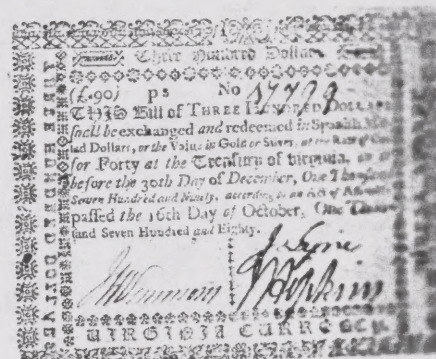 Three Hundred Dollars.
(£.90) ps No 17728
THIS Bill of THREE HUNDRED DOLLARS
shall be exchanged and redeemed in Spanish Mil
led Dollars, or the Value in Gold or Silver, at the Rate of One
for Forty at the Treasury of Virginia, on or
before the 30th Day of December, One Thousand
Seven Hundred and Ninety, according to an Act of Assembly
passed the 16th Day of October, One Thou
sand Seven Hundred and Eighty.
Hopkins
VIRGINIA CURRENCY.
THREE HUNDRED DOLLARS